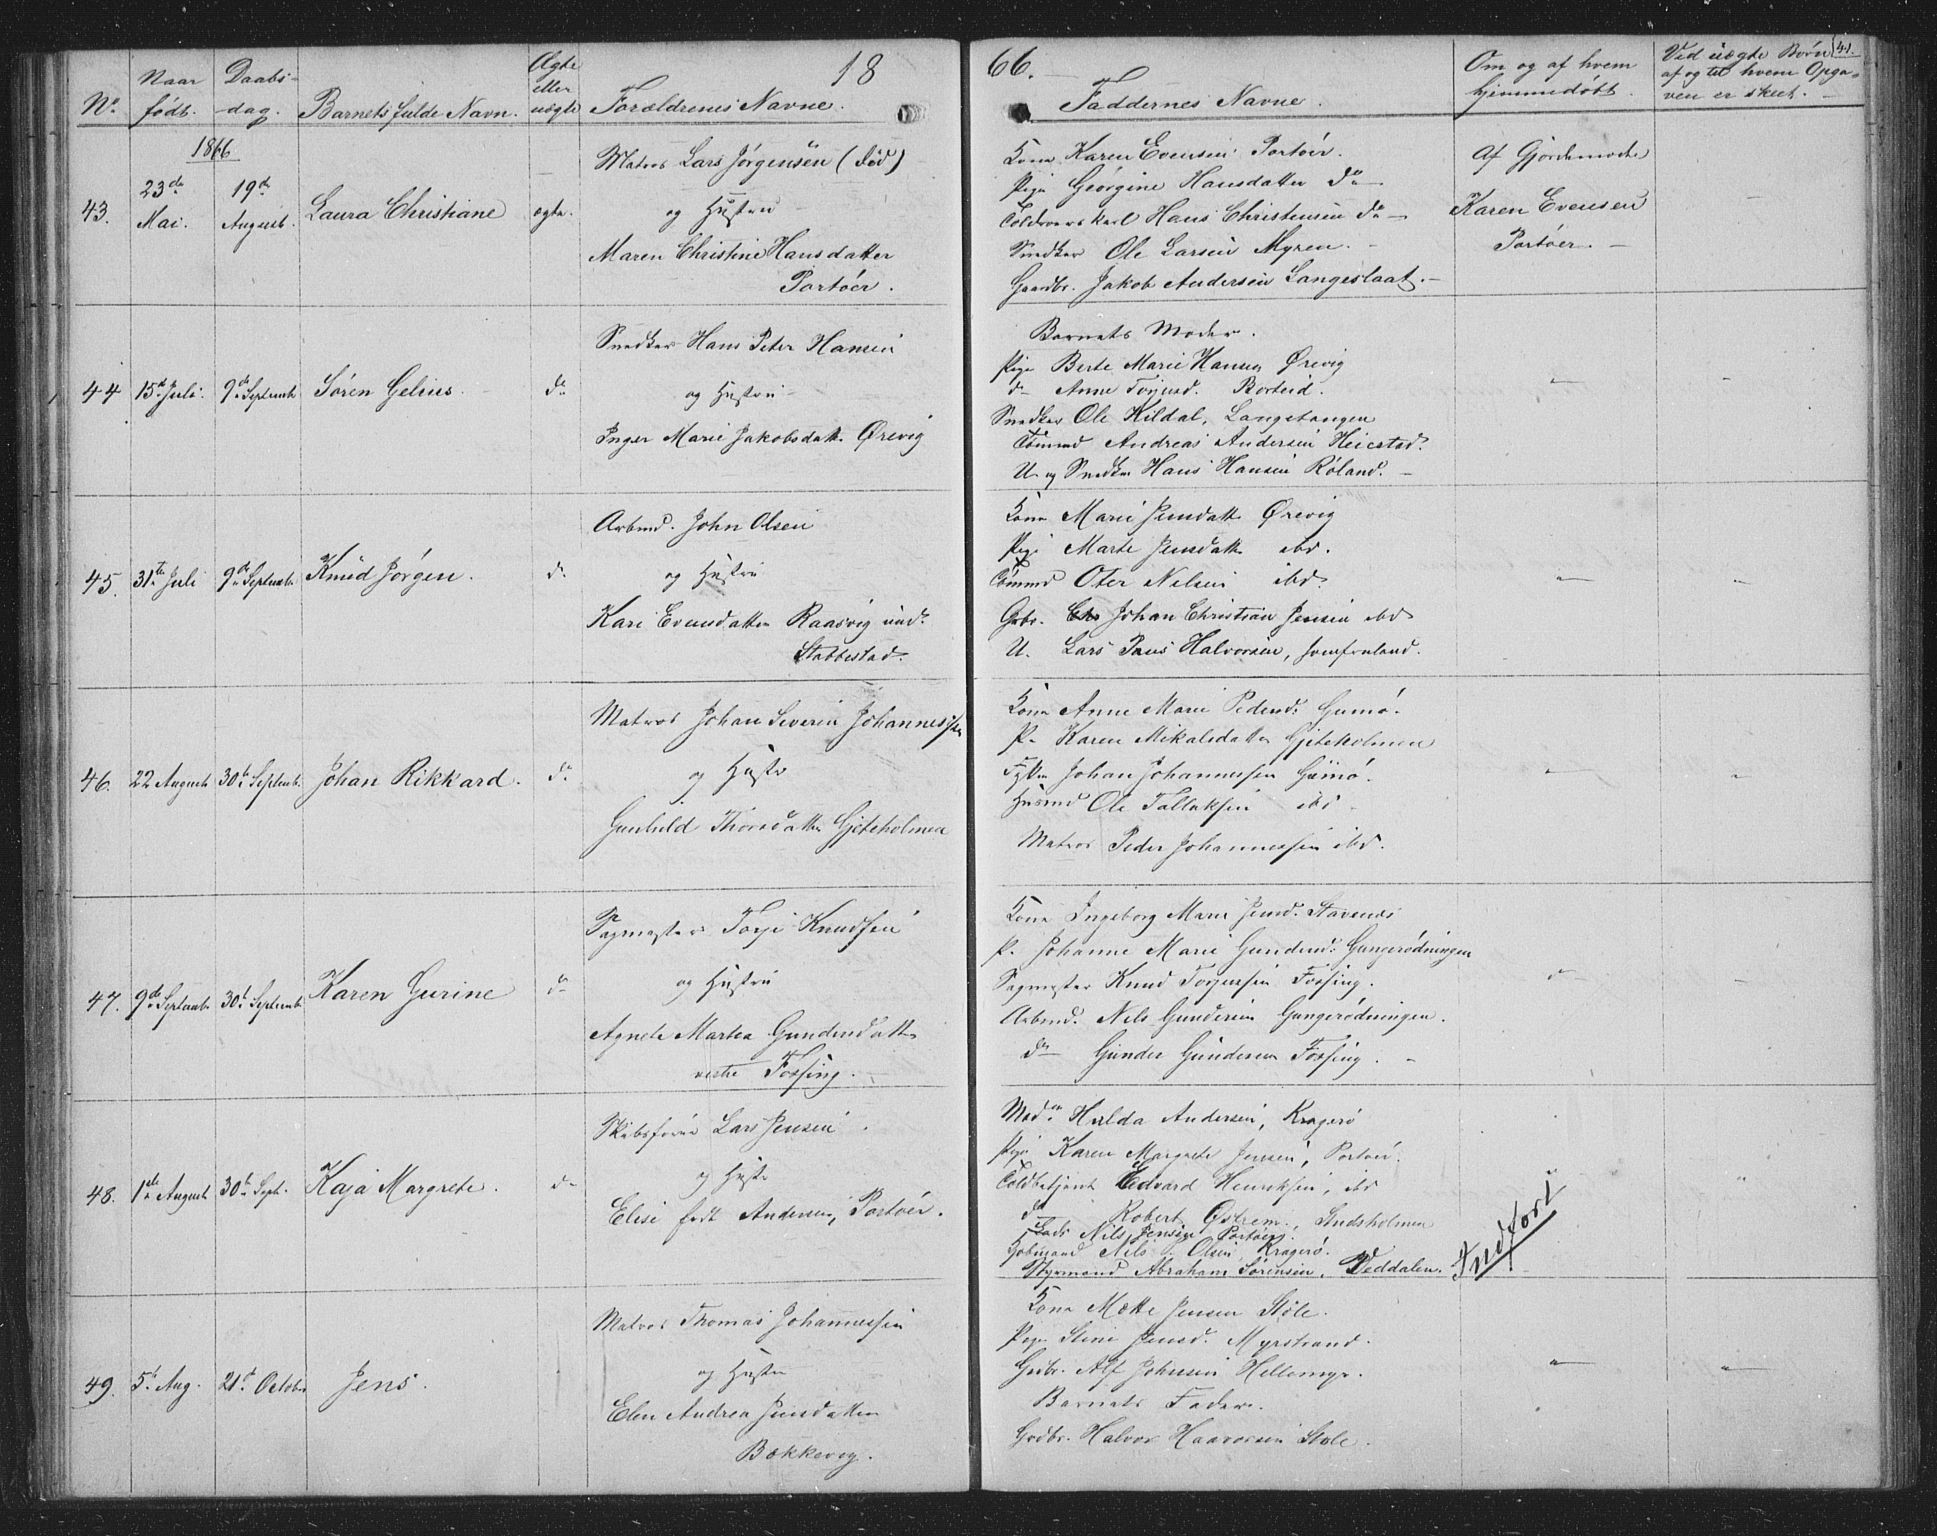 18 66.
41.
No.
Naar født.
Daabs-dag.
Barnets fulde Navn.
Ægte eller uægte
Forældrenes Navne.
Faddernes Navne.
Om og af hvem hjemmedøbt.
Ved uægte Børn af og til hvem Opga-ven er skeet.
1866
43.
23de Mai.
19de August.
Laura Christiane
ægte.
Matros Lars Jørgensen (død)
og Hustru
Maren Christine Hansdatter
Portøer.
Kone Karen Evensen Portøer.
Pige Georgine Hansdatter do
Toldroerskarl Hans Christensen do
Snedker Ole Larsen Myren.
Gaardbr. Jakob Andersen Langeslaat.
Af Gjordemoder
Karen Evensen
Portøer.
44
15de Juli.
9de Septemb.
Søren Gelius.
do
Snedker Hans Peter Hansen
og Hustru
Inger Marie Jakobsdatt. Ørevig
Barnets Moder.
Pige Berte Marie Hansen Ørevig
do Anne Torjusd. Borteid.
Snedker Ole Kildal, Langetangen
Tømmd Andreas Andersen Heiestad.
U. og Snedker Hans Hansen Roland.
45.
31te Juli
9de Septemb.
Knud Jørgen.
do
Arbmd. John Olsen
og Hustru
Kari Evensdatter Raasvig und.
Stabbestad.
Kone Marie Jensdatt. Ørevig
Pige Marte Jensdatt. ibd.
Tømmd Oter Nilsen ibd.
Grbr. Johan Christian Jensen ibd
U. Lars Paus Halvorsen, Jomfruland.
46.
22 August
30te Septemb.
Johan Rikkard.
do
Matros Johan Severin Johannessen
og Hustr
Gunhild Thorsdatter Gjeteholmen
Kone Anne Marie Pedersd. Gumø.
P. Karen Mikalsdatter Gjeteholmen
Johan Johannessen Gumø.
Husmd Ole Tallaksen ibd
Matros Peder Johannessen ibd.
47.
9de Septemb.
30te Septemb
Karen Gurine
do
Sagmester Torje Knudsen
og Hustru
Agnete Martea Gundersdatter
vestre Fossing.
Kone Ingeborg Marie Jensd. Stavenes
P. Johanne Marie Gundersd. Gangerødningen
Sagmester Knud Torjussen Fossing.
Arbmd. Nils Gundersen Gangerødningen.
do Gunder Gundersen Fossing.
48.
1ste August
30te Sept.
Kaja Margrete.
do
Skibsfører Lars Jensen
og Hustr
Elise født Andersen, Portøer.
Madm Hulda Andersen, Kragerø
Pige Karen Margrete Jensen, Portøer.
Toldbetjent Edvard Henriksen, ibd
do Robert Østrem, Studsholmen
Lods Nils Jensen Portøer.
Kobmand Nils Olsen Kragerø.
Styrmand Abraham Sørensen, Veddalen.
Indført
49.
5te Aug.
21de Octobr
Jens.
Matros Thomas Johannessen
og Hustru
Elen Andrea Jensdatter
Bækkevig.
Kone Mætte Jensen Støle.
Pige Stine Jensd. Myrstrand.
Grbr. Alf Johnsen Hellemyr.
Barnets Fader.
Grdbr. Halvor Haavorsen Støle.